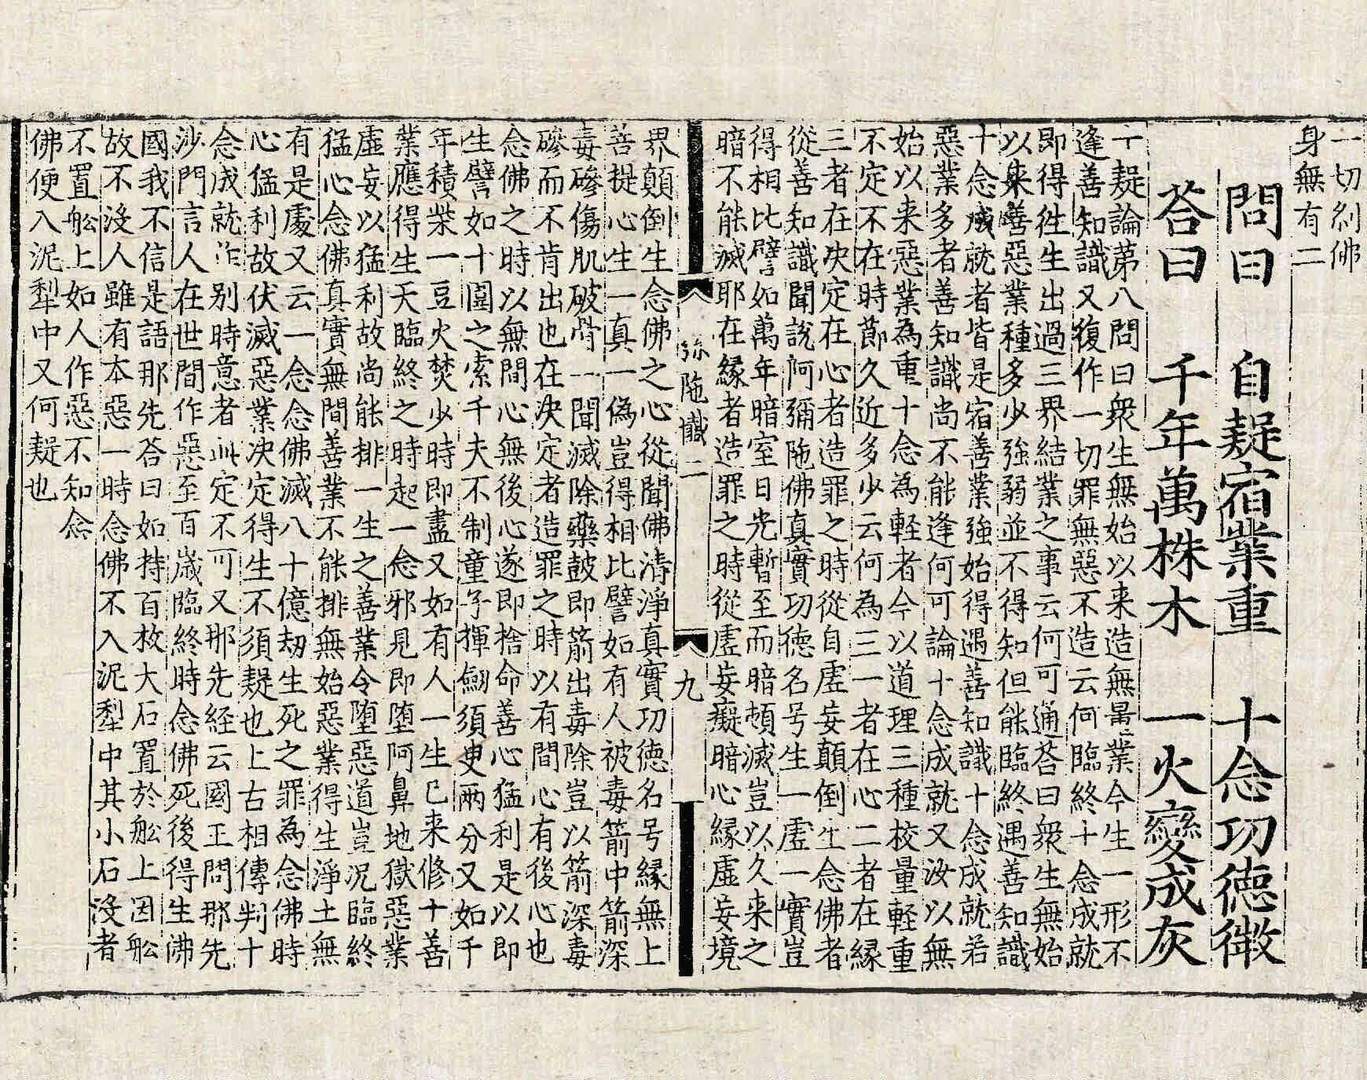 一切刹佛
身無有二
問曰 自疑宿業重 十念功徳微
荅曰 千年萬株木 一火變成灰
十疑論第八問曰衆生無始以来造無量業今生一形不
逢善知識又復作一切罪無惡不造云何臨終十念成就
即得徃生出過三界結業之事云何可通荅曰衆生無始
以来善惡業種多少強弱並不得知但能臨終遇善知識
十念成就者皆是宿善業強始得遇善知識十念成就若
惡業多者善知識尚不能逢何可論十念成就又汝以無
始以来惡業為重十念為軽者今以道理三種校量軽重
不定不在時莭久近多少云何為三一者在心二者在縁
三者在决定在心者造罪之時從自虚妄顛倒生念佛者
從善知識聞說阿彌陁佛真實功徳名号生一虚一實豈
得相比譬如萬年暗室日光暫至而暗頓滅豈以久来之
暗不能滅耶在縁者造罪之時從虚妄癡暗心縁虚妄境
弥陁懴二 九
界顛倒生念佛之心從聞佛清淨真實功徳名号縁無上
菩提心生一真一僞豈得相比譬如有人被毒箭中箭深
毒磣傷肌破骨一聞滅除藥鼓即箭出毒除豈以箭深毒
磣而不肯出也在决定者造罪之時以有間心有後心也
念佛之時以無間心無後心遂即捨命善心猛利是以即
生譬如十圍之索千夫不制童子揮劒須臾兩分又如千
年積柴一豆火焚少時即盡又如有人一生已来修十善
業應得生天臨終之時起一念邪見即堕阿鼻地獄惡業
虚妄以猛利故尚能排一生之善業令堕惡道豈况臨終
猛心念佛真實無間善業不能排無始惡業得生淨土無
有是處又云一念念佛滅八十億劫生死之罪為念佛時
心猛利故伏滅惡業决定得生不須疑也上古相傳判十
念成就作別時意者此定不可又那先経云國王問那先
沙門言人在世間作惡至百歳臨終時念佛死後得生佛
國我不信是語那先荅曰如持百枚大石置於舩上因舩
故不没人雖有本惡一時念佛不入泥犁中其小石没者
不置舩上如人作惡不知念
佛便入泥犁中又何疑也